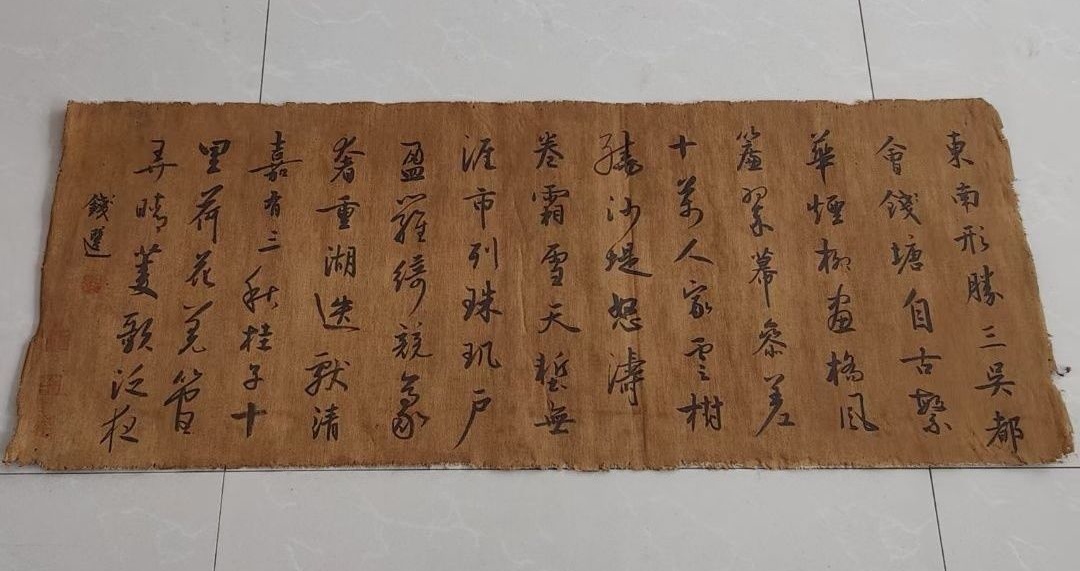 東南形勝三吳都
會錢塘自古繁
華煙柳畫橋風
簾翠幕參差
十萬人家雲樹
繞沙堤怒濤
卷霜雪天塹無
涯市列珠玑戶
盈羅綺競豪
奢重湖迭巘清
嘉有三秋桂子十
里荷花羌管
弄晴菱歌泛夜
錢選